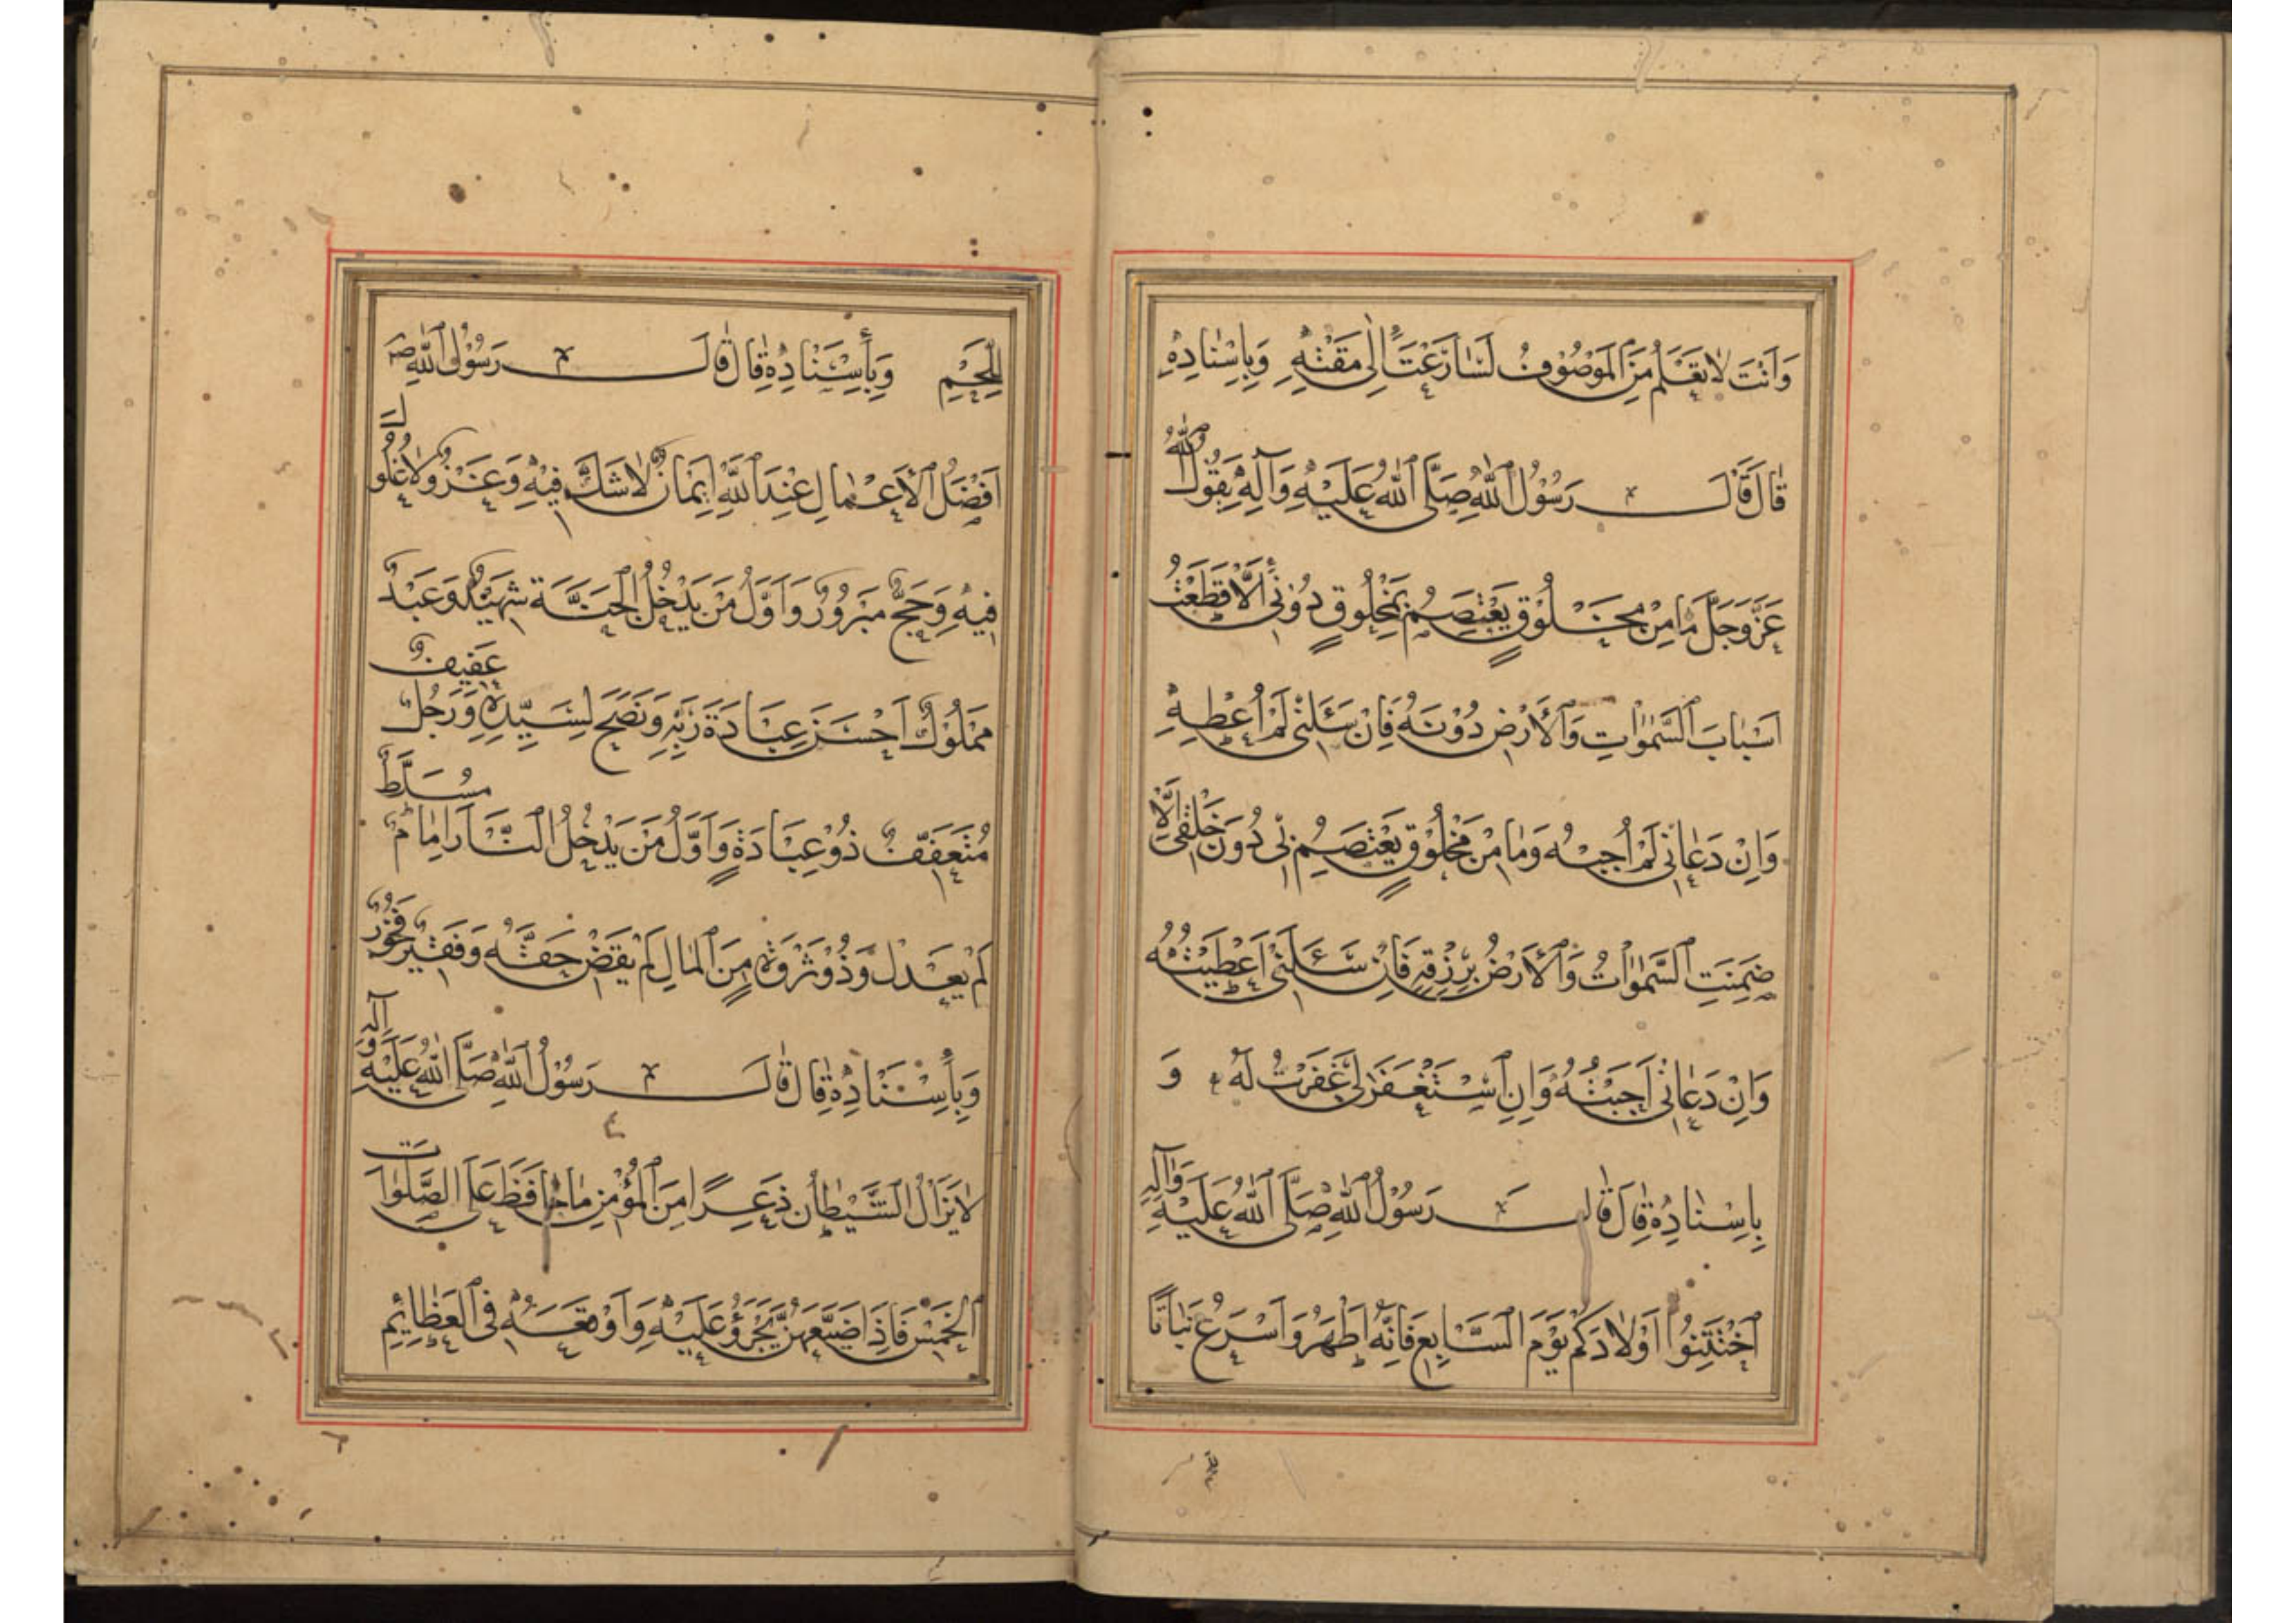 وَاَنْتَ لٰا تَعْلَمُ مَنِ الْمَوْصُوْفُ لَسٰارَعْتَ اِلٰى مَقْتِهٖ وَبِاِسْنٰادِهٖ
قٰالَ قٰالَ رَسُوْلُ اللّٰهِ صَلَّى اللّٰهُ عَلَيْهِ وَآلِهٖ يَقُوْلُ اللّٰهُ
عَزَّ وَجَلَّ مٰا مِنْ مَخْلُوْقٍ يَعْتَصِمُ بِمَخْلُوقٍ دُوْنِيْ اِلّٰا قَطَعْتُ
اَسْبٰابَ السَّمٰوٰاتِ وَالْاَرْضِ دُوْنَهُ فَاِنْ سَئَلَنِيْ لَمْ اُعْطِهِ
وَاِنْ دَعٰانِيْ لَمْ اُجِبْهُ وَمٰا مِنْ مَخْلُوْقٍ يَعْتَصِمُ بِيْ دُوْنَ خَلْقِيْ اِلّٰا
ضَمِنَتِ السَّمٰوٰاتُ وَالْاَرْضُ بِرِزْقِهٖ فَاِنْ سَئَلَنِيْ اَعْطَيْتُهُ
وَاِنْ دَعٰانِيْ اَجَبْتُهُ وَاِنِ اسْتَغْفَرَلِيْ غَفَرْتُ لَهُ وَ
بِاِسْنٰادِهٖ قٰالَ قٰالَ رَسُوْلُ اللّٰهِ صَلَّى اللّٰهُ عَلَيْهِ وَآلِهِ
اخْتَتِنُوْا اَوْلٰادَكُمْ يَوْمَ السّٰابِعِ فَاِنَّهُ اَطْهَرُ وَاَسْرَعُ نَبٰاتًا
لِلَّحْمِ وَبِأِسْنٰادِهٖ قٰالَ قٰالَ رَسُوْلُ اللّٰهِ صـ
اَفْضَلُ الْاَعْمٰالِ عِنْدَ اللّٰهِ اِيْمٰانٌ لٰا شَكَّ فِيْهِ وَغَزْوٌ لٰا غُلُوْلَ
فِيْهِ وَحَجٌّ مَبْرُوْرٌ وَاَوَّلُ مَنْ يَدْخُلُ الْجَنَّةَ شَهِيْدٌ وَعَبْدٌ
مَمْلُوْكٌ اَحْسَنَ عِبٰادَةَ رَبِّهٖ وَنَصَحَ لِسَيِّدِهٖ وَرَجُلٌ عَفِيفٌ
مُتَعَفِّفٌ ذُوْ عِبٰادَةٍ وَاَوَّلُ مَنْ يَدْخُلُ النّٰارَ اِمٰامٌ مُسَلَّطٌ
لَمْ يَعْدِلْ وَذُوْ ثَرْوَةٍ مِنَ الْمٰالِ لَمْ يَقْضِ حَقَّهُ وَفَقِيْرٌ فَخُوْرٌ
وَبِأِسْنٰادِهٖ قٰالَ قٰالَ رَسُوْلُ اللّٰهِ صَلَّى اللّٰهُ عَلَيْهِ وَآلِهِ
لٰا يَزٰالُ الشَّيْطٰانُ ذَعِرًا مِنَ الْمُؤْمِنِ مٰا حٰافَظَ عَلَى الصَّلَوٰاتِ
الْخَمْسِ فَاِذٰا ضَيَّعَهُنَّ تَجَرَّؤَ عَلَيْهِ وَاَوْقَعَهُ فِى الْعَظٰائِمِ